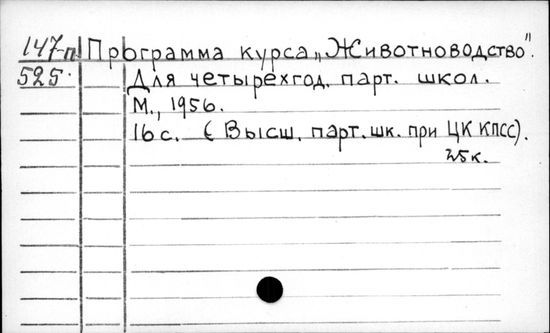 147-п Программа курса „Животноводство".
525. Для четырехгод. парт. школ.
М., 1956.
16 с. (Высш. парт. шк. при ЦК КПСС).
25к.